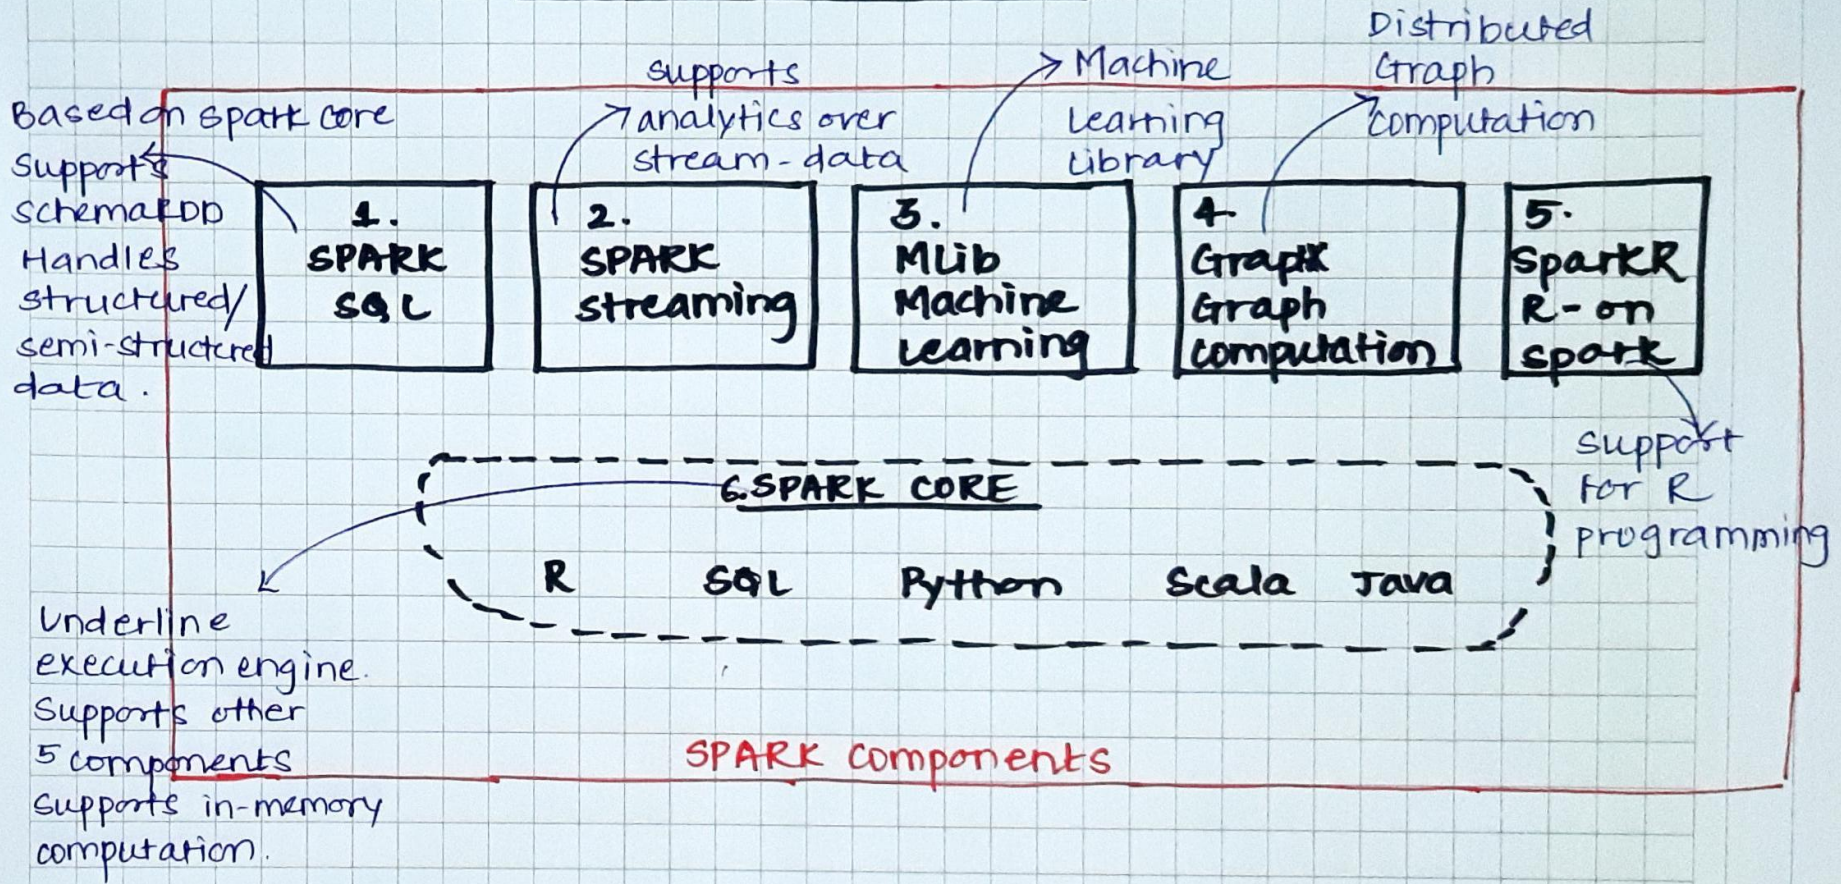 Based on spark core
supports
schemaRDD
Handles
structured/
semi-structered
data.
supports
analytics over
stream-data
Machine
Learning
Library
Distributed
Graph
computation
1.
SPARK
SQL
2.
SPARK
streaming
3.
MLib
Machine
Learning
4.
GraphX
Graph
computation
5.
SparkR
R-on
spark
support
for R
programming
6.SPARK CORE
R SQL Python Scala Java
Underline
execution engine.
Supports other
5 components
supports in-memory
computation.
SPARK components